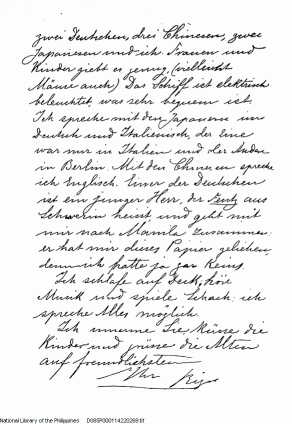 zwei Deutschen, drei Chinesen, zwei
Japanesen und ich. Frauen und
Kinder giebt es genug, (vielleicht
Mäuse auch) Das Schiff ist elektrisch
beleuchtet, was sehr bequem ist.
Ich spreche mit den Japanern in
Deutsch und Italienisch, der Eine
war nur in Italien und der Andre
in Berlin. Mit den Chinesen spreche
ich Englisch. Einer der Deutschen
ist ein junger Herr, der aus
Schwerin heisst und geht mit
mir nach Manila zusammen:
er hat mir dieses Papier geliehen
denn ich hatte ja gar Keins
Ich schlafe auf Deck, höre
Musik und spiele Schach: ich
spreche Alles möglich.
Ich umarme Sie, küsse die
Kinder und grüsse die Alten
auf freundlichsten
Ihr Rizal
National Library of the Philippines